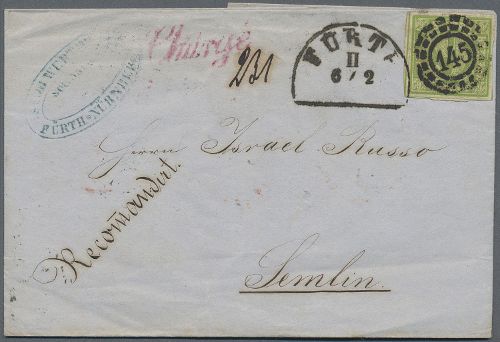 FÜRTH-NÜRNBERG
Chargé
231
FÜRTH
II
6/2
145
Herrn Israel Russo
Recomandirt.
Semlin.